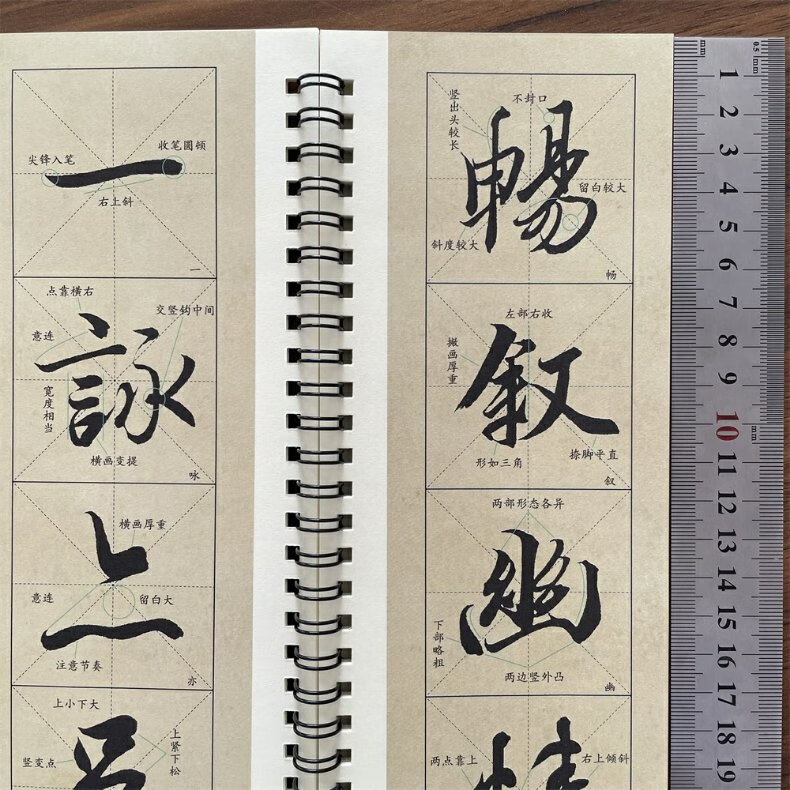 一
尖锋入笔
收笔圆顿
右上斜
一
詠
点靠横右
交竖钩中间
意连
宽度相当
横画变提
咏
亦
横画厚重
意连
留白大
注意节奏
亦
上小下大
竖变点
上紧下松
暢
竖出头较长
不封口
留白较大
斜度较大
畅
叙
左部右收
撇画厚重
形如三角
捺脚平直
叙
幽
两部形态各异
下部略粗
两边竖外凸
幽
两点靠上
右上倾斜
mm
0.5mm
1
2
3
4
5
6
7
8
9
10
mm
11
12
13
14
15
16
17
18
19